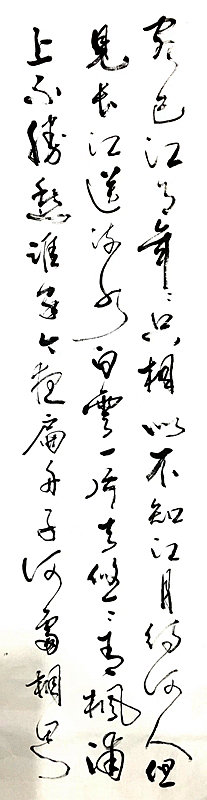 窮已江月年〻只相似不知江月待何人但
見長江送流水白雲一片去悠〻青楓浦
上不勝愁誰家今夜扁舟子何處相思